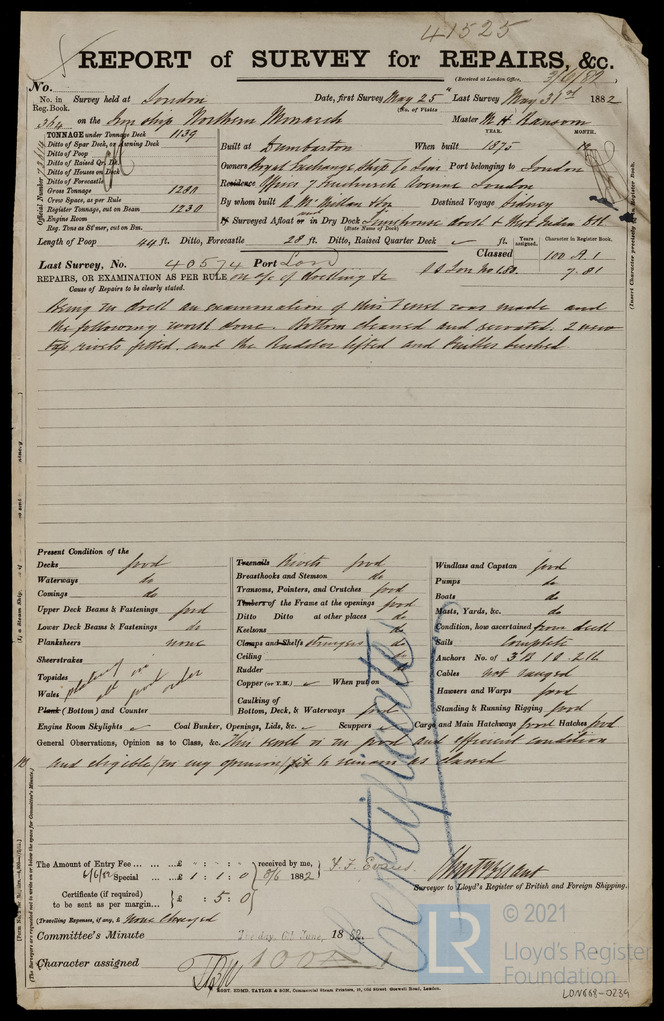 41525
REPORT of SURVEY for REPAIRS, &c.
(Received at London Office, 3/6/82)
No.
No. in Reg. Book. Survey held at London Date, first Survey May 25th Last Survey May 31st 1882
(No. of Visits
364 on the Iron ship Northern Monarch Master M. H. Ransom
TONNAGE under Tonnage Deck 1139 YEAR. MONTH.
Ditto of Spar Deck, or Awning Deck Built at Dumbarton When built 1875
Ditto of Poop
Ditto of Raised Qr. Dk. Owners Royal Exchange Ship Co Lim Port belonging to London
Ditto of Houses on Deck
Ditto of Forecastle Residence Offices 7 Fenchurch Avenue London
Gross Tonnage 1230
Crew Space, as per Rule By whom built A. McMillan & Son Destined Voyage Sidney
Register Tonnage, cut on Beam 1230
Engine Room If Surveyed Afloat or in Dry Dock Limehouse dock & West India Dk
(State Name of Dock)
Reg. Tons as St'mer, cut on Bm.
Official Number
(Insert Character precisely as in Register Book.
Length of Poop 44 ft. Ditto, Forecastle 28 ft. Ditto, Raised Quarter Deck ✓ ft. Years assigned. Character in Register Book.
Classed 100 A 1
Last Survey, No. 40574 Port Lon
7.81
REPAIRS, OR EXAMINATION AS PER RULE on a/c of docking &c
Cause of Repairs to be clearly stated.
Being in dock an examination of this vessel was made and
the following work done. Bottom cleaned and recoated. 2 new
tap rivets fitted and the Rudder lifted and Pintles bushed
Present Condition of the
Decks good Treenails Rivets good Windlass and Capstan good
Waterways do Breasthooks and Stemson do Pumps do
Comings do Transoms, Pointers, and Crutches good Boats do
Upper Deck Beams & Fastenings good Timbers of the Frame at the openings good Masts, Yards, &c. do
Lower Deck Beams & Fastenings do Ditto Ditto at other places do Condition, how ascertained from deck
Planksheers none Keelsons do Sails Complete
Sheerstrakes Clamps and Shelfs Stringers do Anchors No. of 3 B. 1 S. 2 K.
Topsides plating in Ceiling do Cables not ranged
Wales all good order Rudder do Hawsers and Warps good
Plank (Bottom) and Counter Copper (or Y.M.) ✓ When put on Standing & Running Rigging good
Caulking of Bottom, Deck, & Waterways good
Engine Room Skylights ✓ Coal Bunker, Openings, Lids, &c. ✓ Scuppers Cargo and Main Hatchways good Hatches good
General Observations, Opinion as to Class, &c. This vessel is in good and efficient condition
and eligible (in my opinion) fit to remain as classed
Certificate
The Amount of Entry Fee ... ... ... £ : : received by me,
6/6/82 Special ... £ 1 : 1 : 0 1882 F. J. Evans
Certificate (if required) to be sent as per margin... £ : 5 : 0
Surveyor to Lloyd's Register of British and Foreign Shipping.
(Travelling Expenses, if any, £ None Charged
Committee's Minute Tuesday, 6th June, 1882.
Character assigned 100 A 1
ROBT. EDMD. TAYLOR & SON, Commercial Steam Printers, 19, Old Street, Goswell Road, London.
(The Surveyors are requested not to write on or below the space for Committee's Minute.)
LR
© 2021
Lloyd's Register
Foundation
LON668-0239